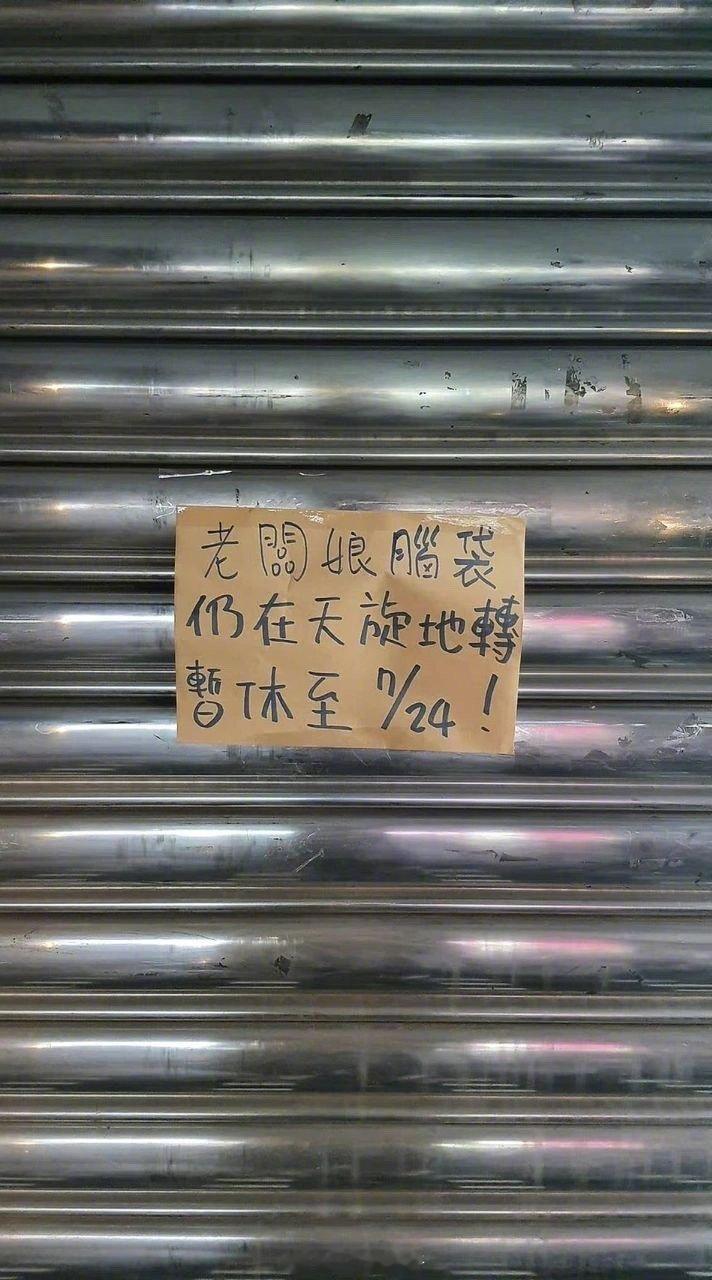 老闆娘腦袋
仍在天旋地轉
暫休至 7/24！